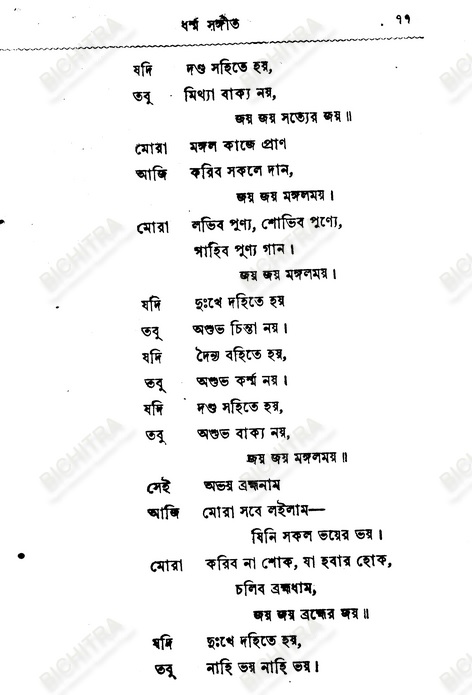 ধর্ম্ম সঙ্গীত ৭৭
যদি দণ্ড সহিতে হয়,
তবু মিথ্যা বাক্য নয়,
জয় জয় সত্যের জয়॥
মোরা মঙ্গল কাজে প্রাণ
আজি করিব সকলে দান,
জয় জয় মঙ্গলময়।
মোরা লভিব পুণ্য, শোভিব পুণ্যে,
গাহিব পুণ্য গান।
জয় জয় মঙ্গলময়।
যদি দুঃখে দহিতে হয়
তবু অশুভ চিন্তা নয়।
যদি দৈন্য বহিতে হয়,
তবু অশুভ কর্ম্ম নয়।
যদি দণ্ড সহিতে হয়,
তবু অশুভ বাক্য নয়,
জয় জয় মঙ্গলময়॥
সেই অভয় ব্রহ্মনাম
আজি মোরা সবে লইলাম—
যিনি সকল ভয়ের ভয়।
মোরা করিব না শোক, যা হবার হোক,
চলিব ব্রহ্মধাম,
জয় জয় ব্রহ্মের জয়॥
যদি দুঃখে দহিতে হয়,
তবু নাহি ভয় নাহি ভয়।
BICHITRA